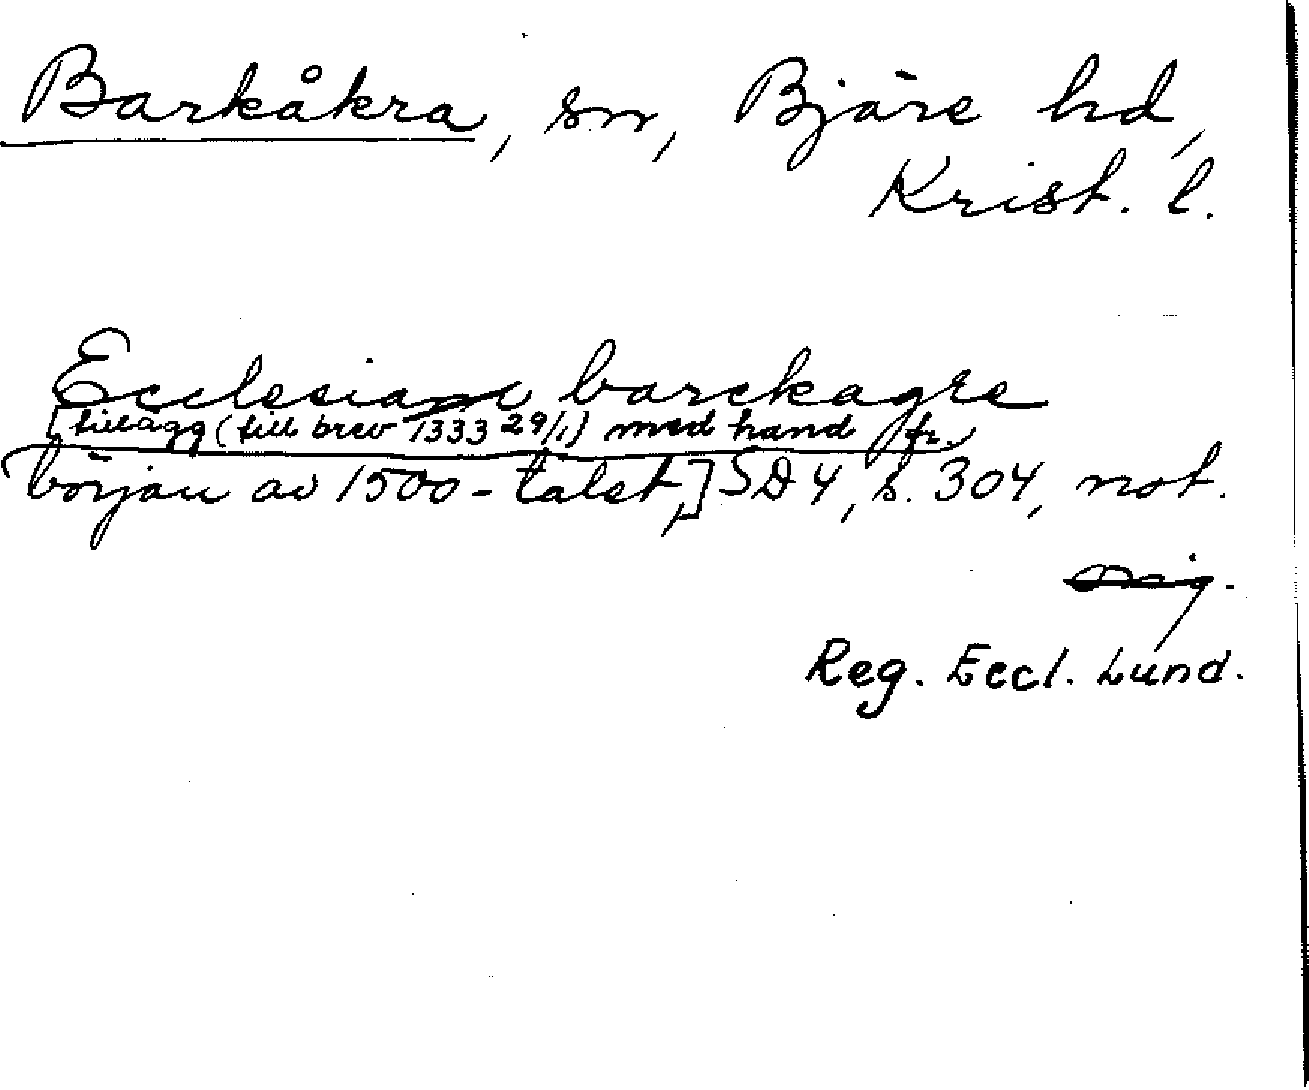 Barkåkra, sn, Bjäre hd,
Krist. l.
Ecclesia barckagre
[tillägg (till brev 1333 29/1) med hand fr.
början av 1500-talet,] SD 4, s. 304, not.
orig.
Reg. Eccl. Lund.